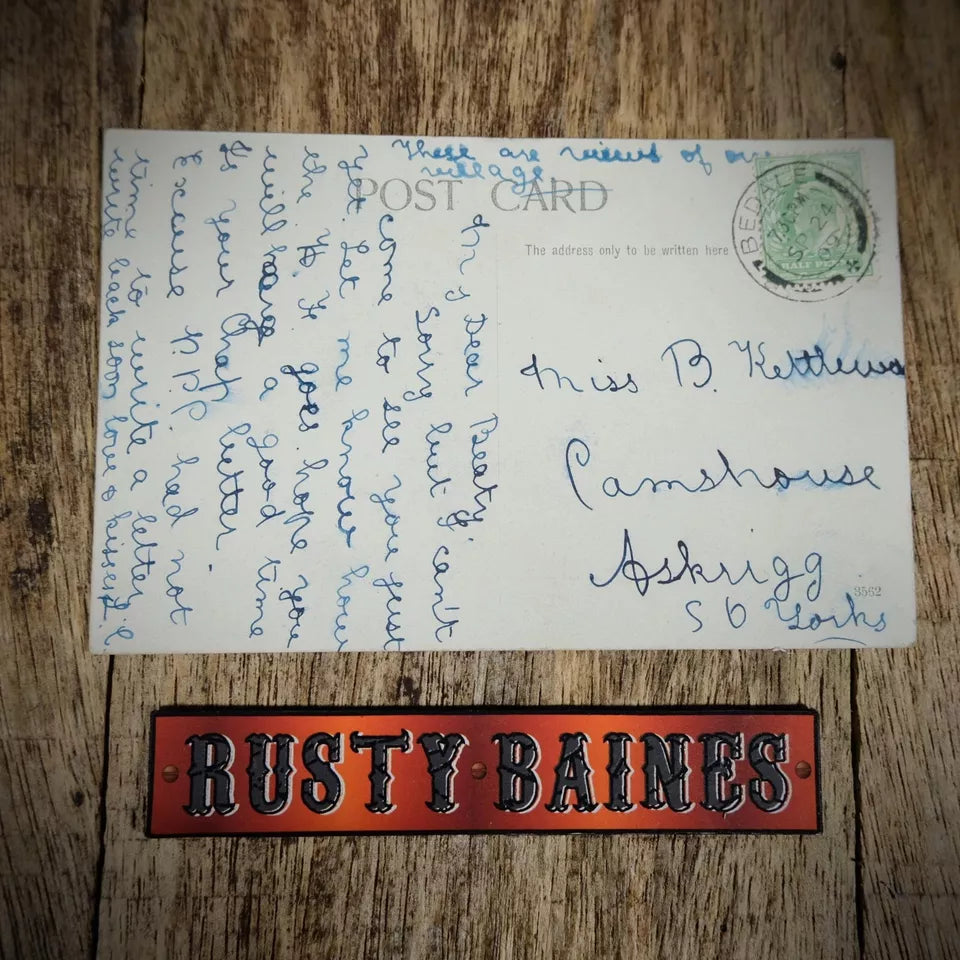 These are views of our
village
POST CARD
The address only to be written here
BEDALE
SP 24
09
HALF PE
Miss B. Kettlewe
Camshouse
Askrigg
S O Yorks
3562
My Dear Beaty,
Sorry but I can't
come to see you just
yet. let me know how
the goes hope you
will have a good time
Is your Chaf better.
Excuse P.P.P. had not
time to write a letter
write back soon love & kisses
RUSTY BAINES